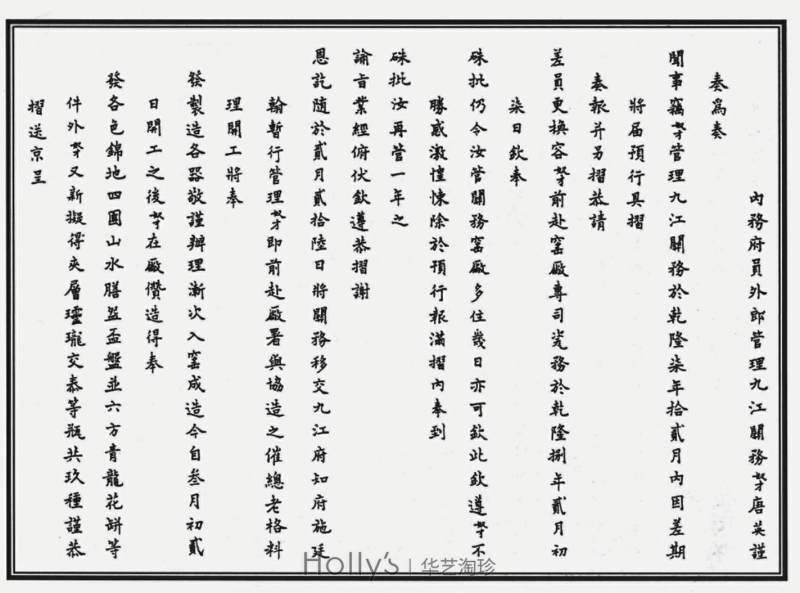 內務府員外郎管理九江關務奴才唐英謹
奏為奏
聞事竊奴才管理九江關務於乾隆柒年拾貳月內因差期
將屆預行具摺
奏報并另摺恭請
差員更換容奴才前赴窑廠專司瓷務於乾隆捌年貳月初
柒日欽奉
硃批仍令汝管關務窑廠多住幾日亦可欽此欽遵奴才不
勝感激惶悚除於預行報滿摺內奉到
硃批汝再管一年之
諭旨業經俯伏欽遵恭摺謝
恩訖隨於貳月貳拾陸日將關務移交九江府知府施廷
翰暫行管理奴才即前赴廠署與協造之催總老格料
理開工將奉
發製造各器敬謹辦理漸次入窑成造今自叁月初貳
日開工之後奴才在廠儹造得奉
發各色錦地四團山水膳盌盃盤並六方青龍花缾等
件外奴才又新擬得夾層玲瓏交泰等瓶共玖種謹恭
摺送京呈
Holly's | 华艺淘珍